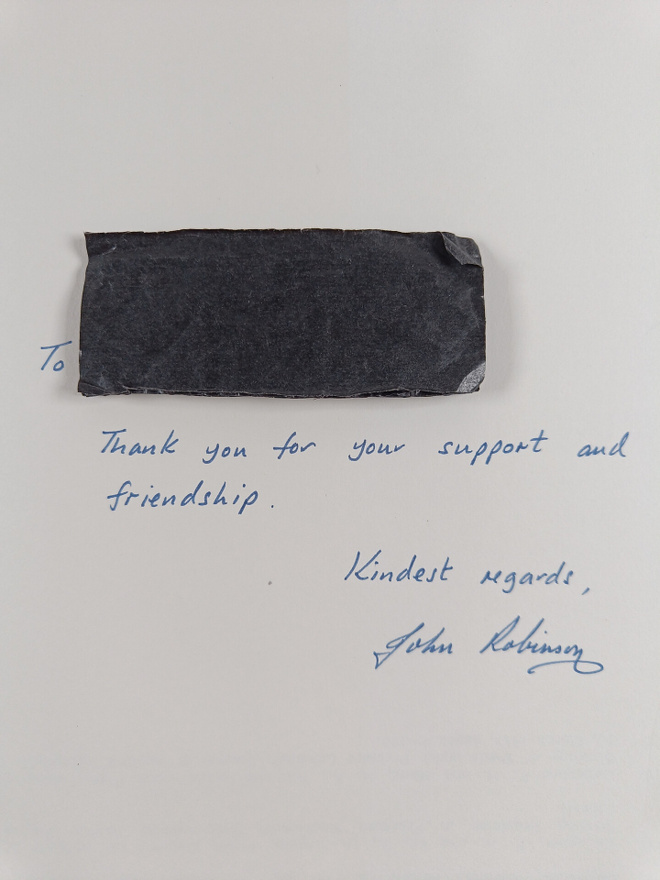 To
Thank you for your support and
friendship.
Kindest regards,
John Robinson